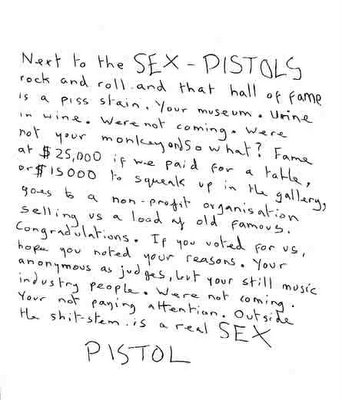 Next to the SEX-PISTOLS
rock and roll and that hall of fame
is a piss stain. Your museum. Urine
in wine. Were not coming. Were
not your monkey and so what? Fame
at $25,000 if we paid for a table,
or $15000 to squeak up in the gallery,
goes to a non-profit organisation
selling us a load of old famous.
Congradulations. If you voted for us,
hope you noted your reasons. Your
anonymous as judges, but your still music
industry people. Were not coming.
Your not paying attention. Outside
the shit-stem is a real SEX
PISTOL